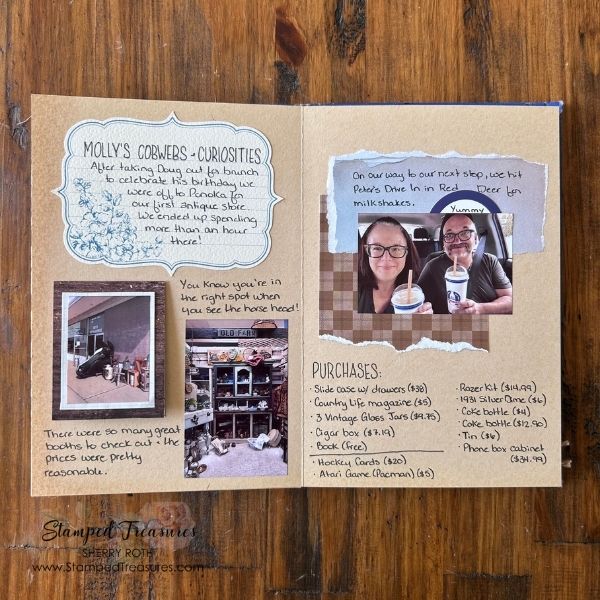 MOLLY'S COBWEBS + CURIOSITIES
After taking Doug out for brunch
to celebrate his birthday we
were off to Ponoka for
our first antique store.
We ended up spending
more than an hour
there!
You know you're in
the right spot when
you see the horse head!
OLD FARM
There were so many great
booths to check out + the
prices were pretty
reasonable.
On our way to our next stop, we hit
Peter's Drive In in Red Deer for
milkshakes.
Yummy
PURCHASES:
• Slide case w/ drawers ($38)
• Country Life magazine ($5)
• 3 Vintage Glass Jars ($9.75)
• Cigar box ($7.19)
• Book (free)
• Hockey Cards ($20)
• Atari Game (Pacman) ($5)
• Razer Kit ($14.99)
• 1931 Silver Dime ($6)
• Coke bottle ($4)
• Coke bottle ($12.90)
• Tin ($6)
• Phone box cabinet
($34.99)
Stamped Treasures
SHERRY ROTH
www.StampedTreasures.com